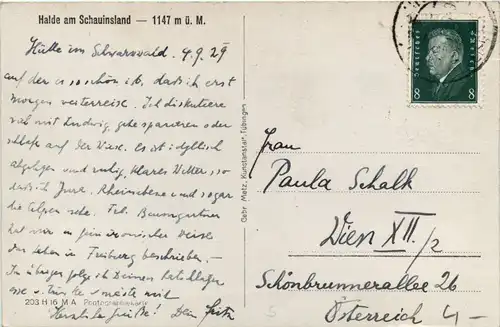 Halde am Schauinsland — 1147 m ü. M.
Hütte im Schwarzwald. 4.9.29
auf der es so schön ist, dass ich erst
morgen weiterreise. Ich diskutiere
viel mit Ludwig, gehe spazieren oder
schlafe auf der Wiese. Es ist idyllisch
abgelegen und ruhig, klares Wetter, so
dass ich Jura, Rheinebene und sogar
die Alpen sehe. Frl. Baumgartner
hat mir in fein ironischer Weise
das Leben in Freiburg beschrieben. –
Im übrigen folge ich Deinen Ratschlägen
esse u. trinke
Herzliche Grüße! Dein Fritz
203 H 16 M A Photochromiekarte
Gebr. Metz, Kunstanstalt, Tübingen
Deutsches Reich
8 8
Frau
Paula Schalk
Wien XII./2
Schönbrunnerallee 26
Österreich